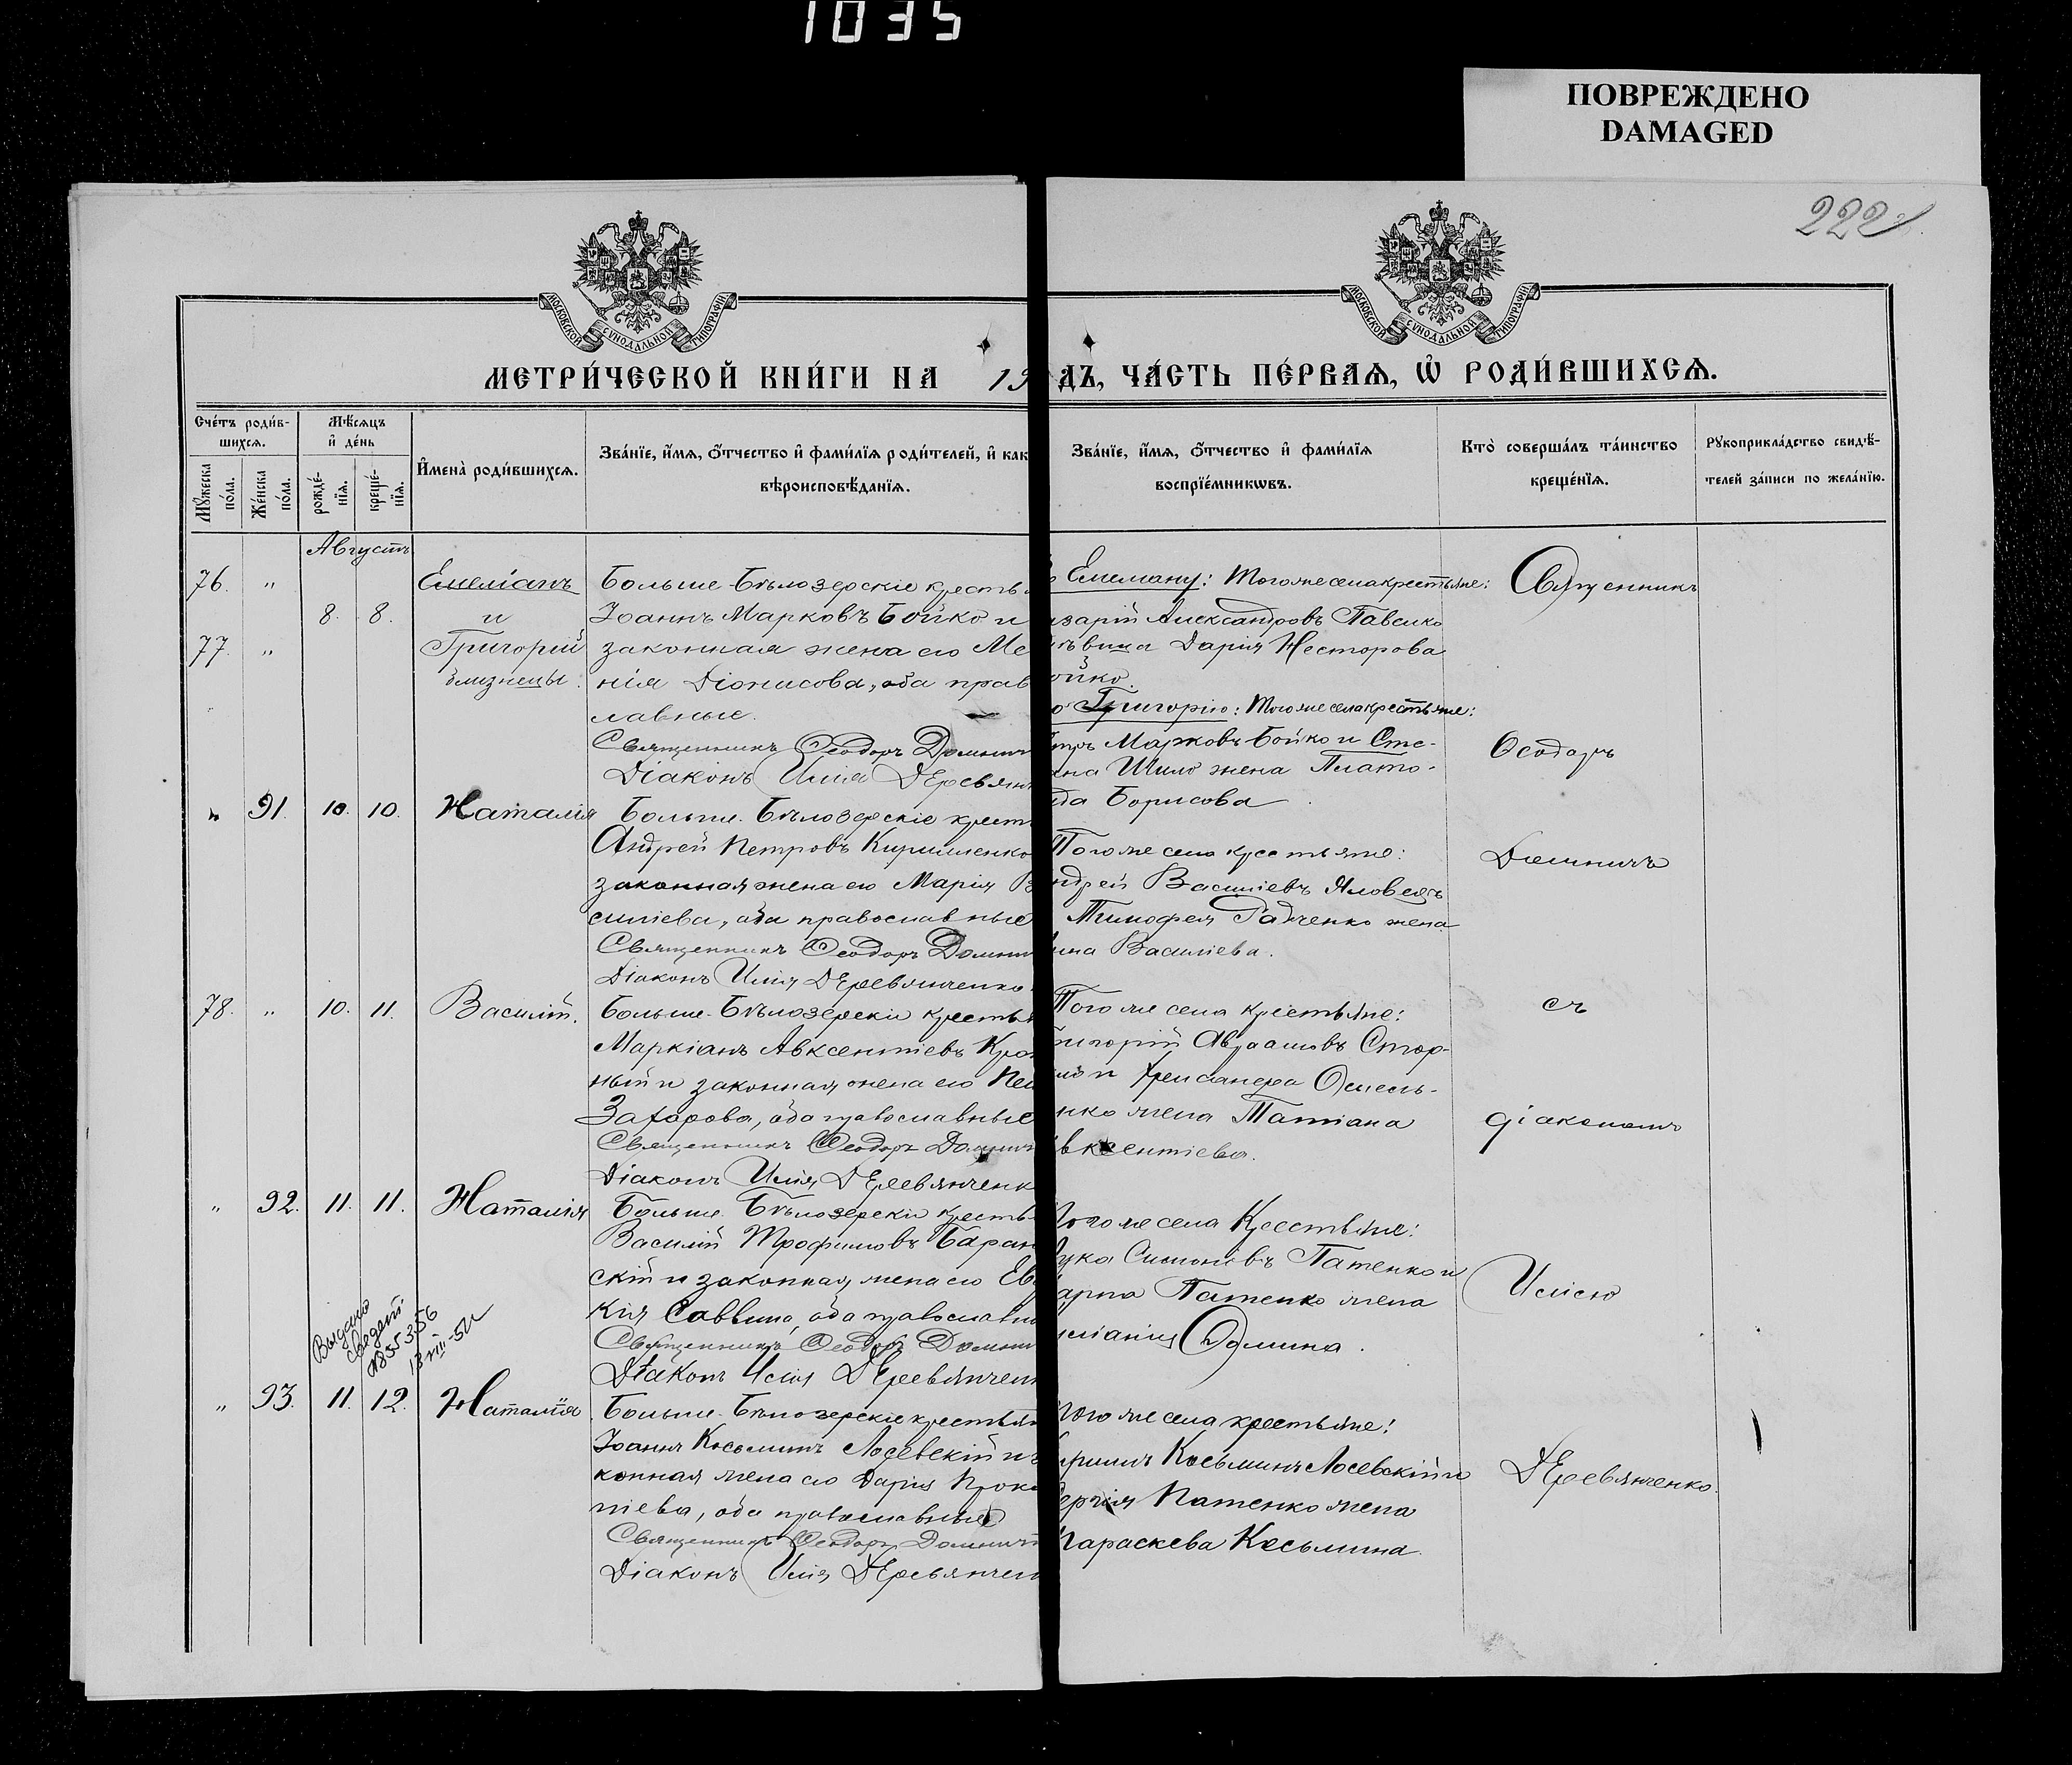 1035
ПОВРЕЖДЕНО
DAMAGED
222
МОСКОВСКОЙ СѴНОДАЛЬНОЙ ТИПОГРАФІИ
МОСКОВСКОЙ СѴНОДАЛЬНОЙ ТИПОГРАФІИ
МЕТРИ́ЧЕСКОЙ КНИ́ГИ НА 19
ДЪ, ЧА́СТЬ ПЕ́РВАѦ, Ѡ҆ РОДИ́ВШИХСѦ.
Сче́тъ роди́в-
шихсѧ.
Мꙋ́жеска
по́ла.
Же́нска
по́ла.
Мѣ́сѧцъ
и҆ де́нь
рожде́-
нїѧ.
креще́-
нїѧ.
И҆мена̀ роди́вшихсѧ.
Зва́нїе, и҆́мѧ, ѻ҆́тчество и҆ фами́лїѧ роди́телей, и҆ как
вѣроисповѣ́данїѧ.
Зва́нїе, и҆́мѧ, ѻ҆́тчество и҆ фами́лїѧ
воспрїе́мникѡвъ.
Кто̀ соверша́лъ та́инство
креще́нїѧ.
Рꙋкоприкла́дство свидѣ́-
телей за́писи по жела́нїю.
Августъ
76. " Емеліанъ
8. 8. и
77. " Григорій
близнецы.
Больше-Бѣлозерскіе кресть
Іоаннъ Марковъ Бойко и
законная жена его Ме
нія Діонисова, оба прав
лавные.
Священникъ Ѳеодоръ Домнич
Діаконъ Илія Деревян
Емеліану: Того же села крестьяне:
Александровъ Павенко
Дарія Несторова
ойко.
Григорію: Того же села крестьяне:
Марковъ Бойко и Сте-
Шило жена Плато-
Борисова
" 91. 10. 10. Наталія
Больше-Бѣлозерскіе крест
Андрей Петровъ Кириленко
законная жена его Марія В
силіева, оба православные
Священникъ Ѳеодоръ Домни
Діаконъ Илія Деревянченко
Того же села крестьяне:
ндрей Василіевъ Яловецъ
Тимофея Радченко жена
Василіева.
78. " 10. 11. Василій.
Больше-Бѣлозерскіе кресть
Маркіанъ Авксентіевъ Кра
ный и законная жена его Пел
Захарова, оба православные
Священникъ Ѳеодоръ Домнич
Діаконъ Илія Деревянченк
Того же села крестьяне:
ригорій Авраамовъ Стор-
Омель-
нко жена Татіана
вксентіева.
" 92. 11. 11. Наталія
Больше-Бѣлозерскіе кресть
Василій Трофимовъ Баран
скій и законная жена его Ев
кія Саввина, оба православн
Священникъ Ѳеодоръ Домни
Діаконъ Илія Деревянчен
Того же села Крестьяне:
ука Симоновъ Патенко и
арпа Патенко жена
Ѳомина.
Выдано
Свидет.
№ 55356
13 VIII-51
" 93. 11. 12. Наталія
Больше-Бѣлозерскіе крестьян
Іоаннъ Косьминъ Лосевскій и з
конная жена его Дарія Прок
піева, оба православные
Священникъ Ѳеодоръ Домнич
Діаконъ Илія Деревянчен
Того же села крестьяне:
ириллъ Косьминъ Лосевскій и
ергія Патенко жена
Параскева Косьмина.
Священникъ
Ѳеодоръ
Домничъ
съ
діакономъ
Иліею
Деревянченко.